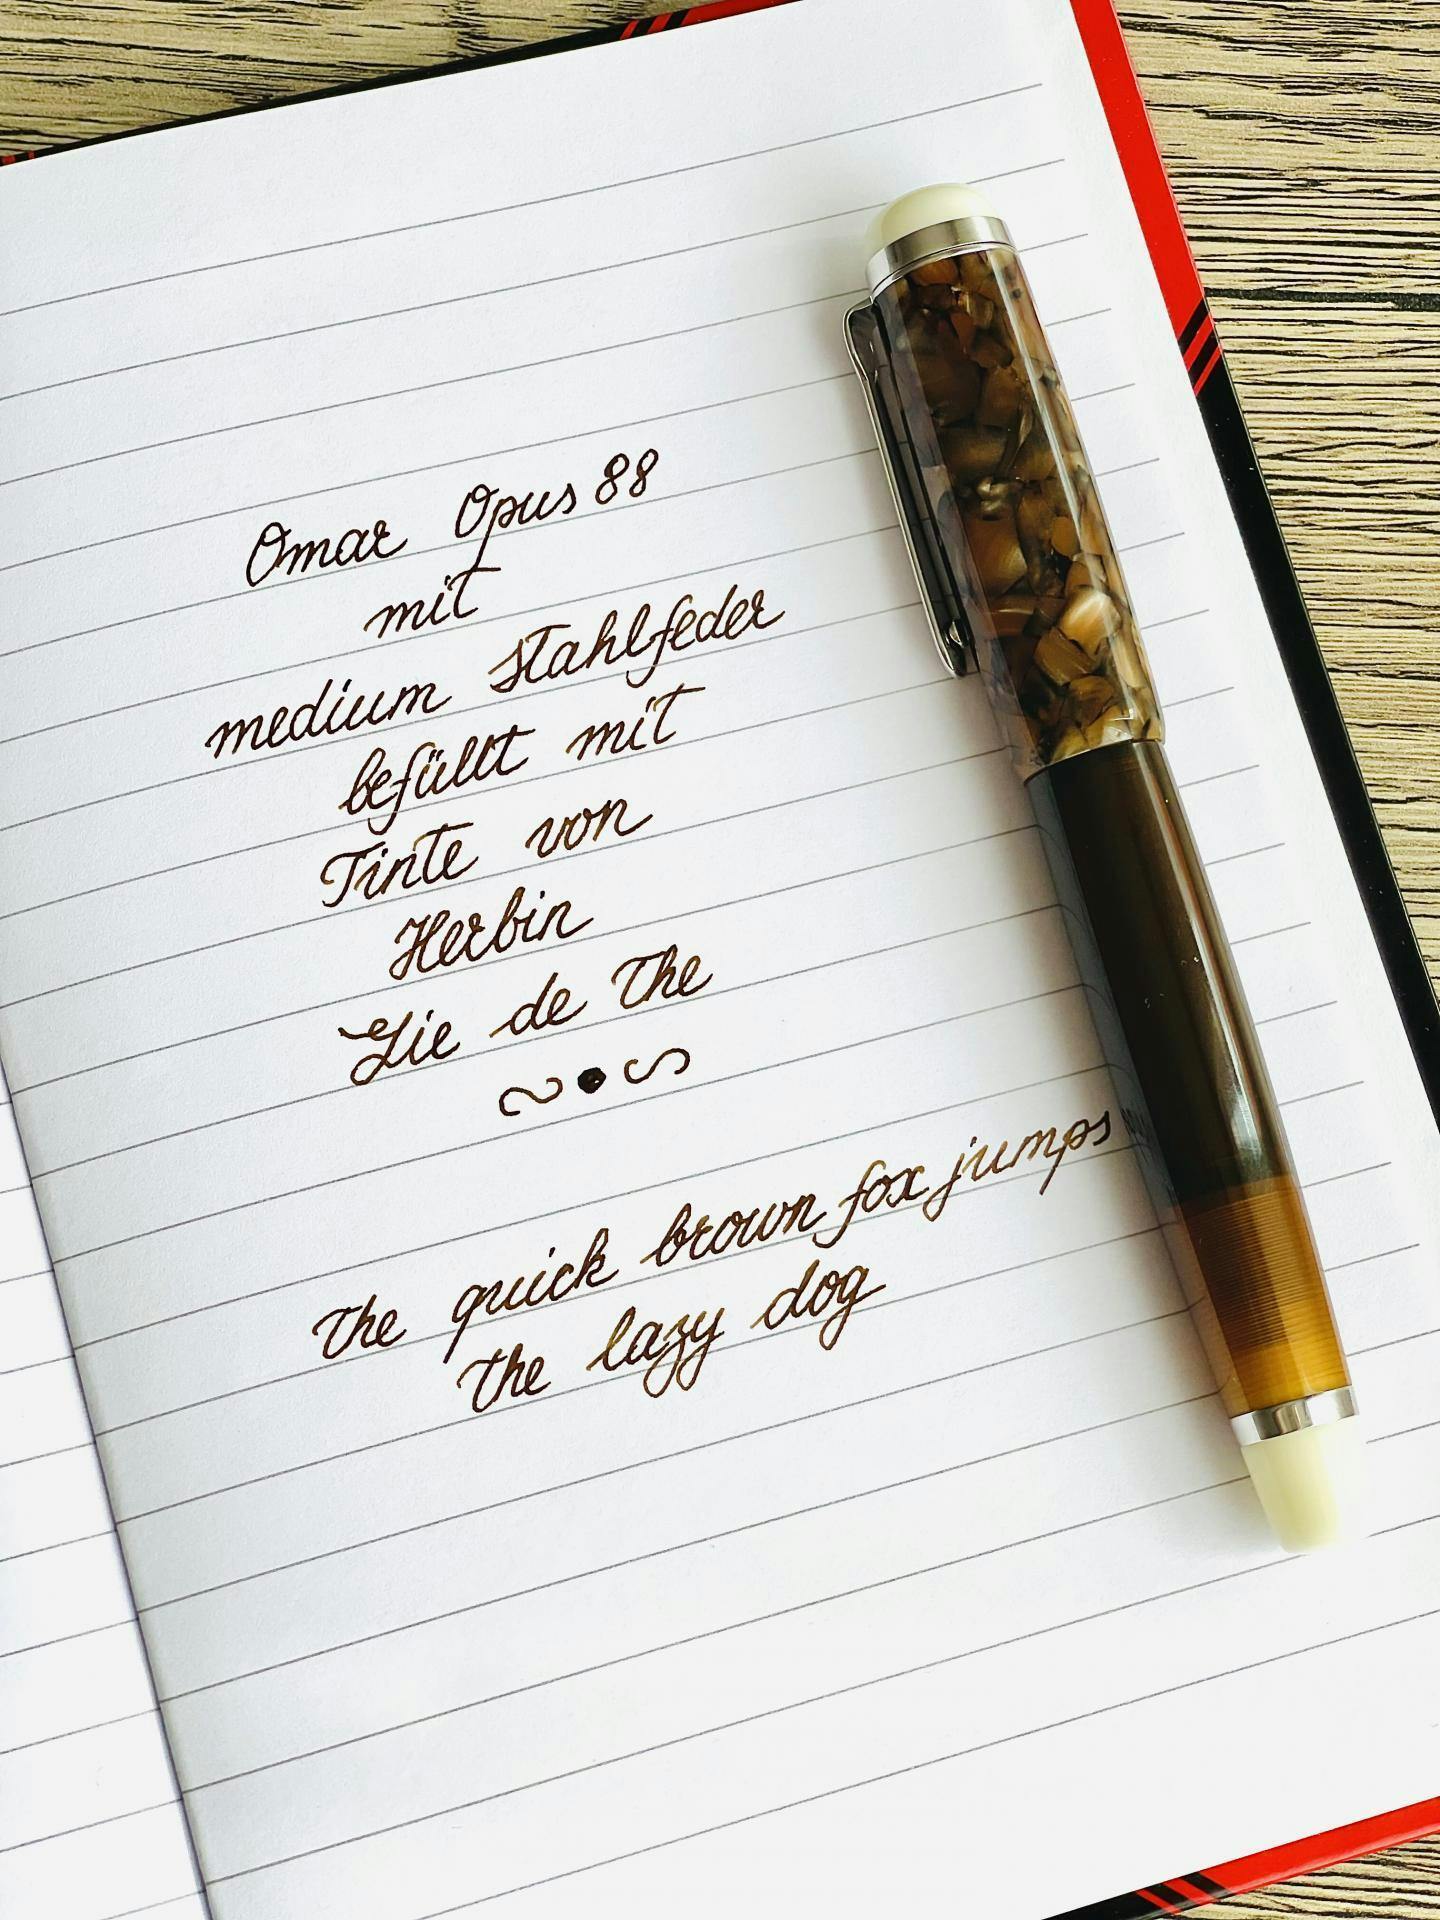 Omar Opus 88
mit
medium Stahlfeder
befüllt mit
Tinte von
Herbin
Lie de The
The quick brown fox jumps
the lazy dog